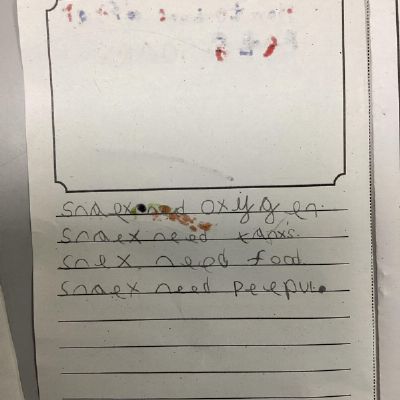 snaex need oxygen.
snaex need tanxs.
snex. need food
snaex need peepul.